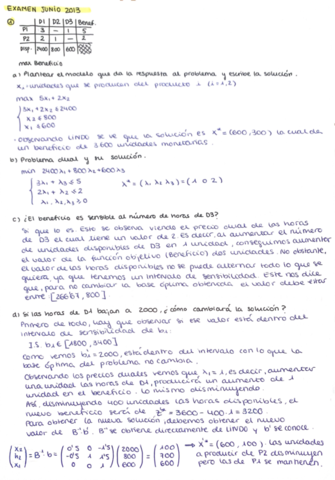 EXAMEN JUNIO 2013
② D1 D2 D3 Benef.
P1 3 - 1 5
P2 2 1 - 2
Disp. 2400 800 600
max Beneficio
a) Plantear el modelo que da la respuesta al problema y escribe la solución.
xi = unidades que se producen del producto i (i=1,2)
max 5x1 + 2x2
3x1 + 2x2 ≤ 2400
x2 ≤ 800
x1 ≤ 600
- Observando LINDO se ve que la solución es x* = (600, 300) la cual da
un beneficio de 3.600 unidades monetarias.
b) Problema dual y su solución.
min 2400λ1 + 800λ2 + 600λ3
3λ1 + λ3 ≥ 5
2λ1 + λ2 ≥ 2
λ1, λ2, λ3 ≥ 0
λ* = (λ1 λ2 λ3) = (1 0 2)
c) ¿El beneficio es sensible al número de horas de D3?
Si que lo es. Esto se observa viendo el precio dual de las horas
de D3 el cual tiene un valor de 2. Es decir, al aumentar el número
de unidades disponibles de D3 en 1 unidad, conseguimos aumentar
el valor de la función objetivo (Beneficio) dos unidades. No obstante,
el valor de las horas disponibles no se puede alternar todo lo que se
quiera ya que tenemos un intervalo de sensibilidad. Este nos dice
que, para no cambiar la base óptima obtenida el valor debe estar
entre [266'67, 800]
d) Si las horas de D1 bajan a 2000. ¿cómo cambiará la solución?
Primero de todo, hay que observar si ese valor está dentro del
intervalo de sensibilidad de b1.
IS b1 ∈ [1800, 3400]
Como vemos b1 = 2000, está dentro del intervalo con lo que la
base óptima del problema no cambia.
Observando los precios duales vemos que λ1 = 1, es decir, aumentar
una unidad las horas de D1, producirá un aumento de 1
unidad en el beneficio. Lo mismo disminuyendo.
Así, disminuyendo 400 unidades las horas disponibles, el
nuevo beneficio será de z* = 3600 - 400·1 = 3200.
Para obtener la nueva solución, debemos obtener el nuevo
valor de B⁻¹b. B⁻¹ se obtiene directamente de LINDO y b se conoce.
= B⁻¹b = (0'5 0 -1'5) (2000) = (100) → x* = (600, 100) Las unidades
(-0'5 1 1'5) (800) (700) a producir de P2 disminuyen
(0 0 1) (600) (600) pero las de P1 se mantienen.